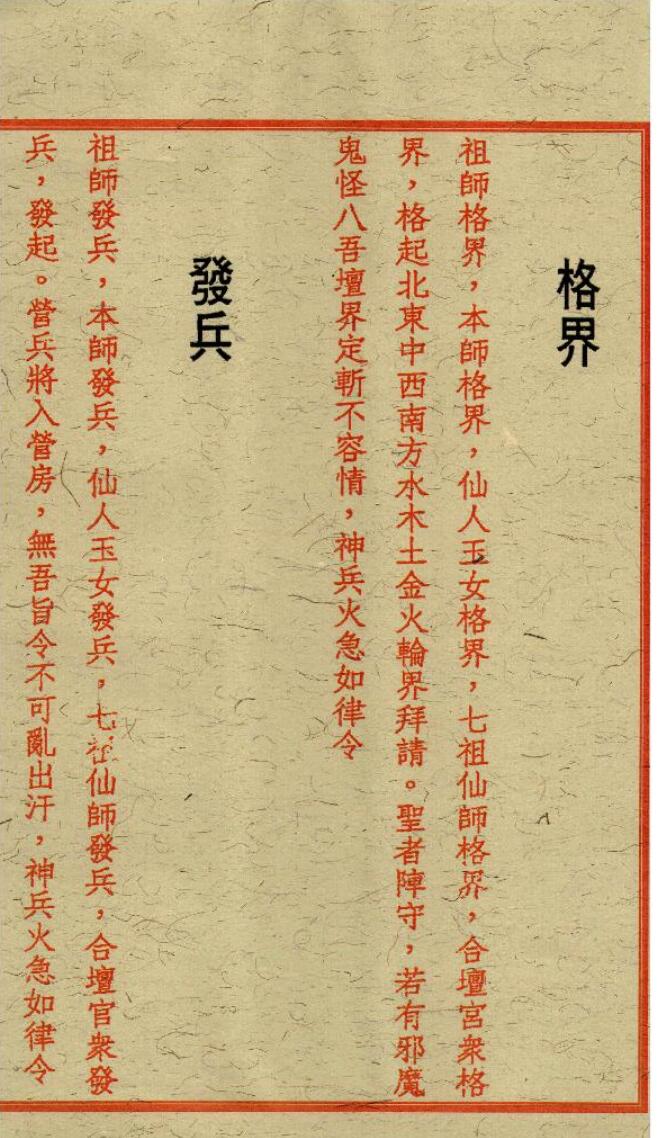 格界
祖師格界，本師格界，仙人玉女格界，七祖仙師格界，合壇宮衆格
界，格起北東中西南方水木土金火輪界拜請。聖者陣守，若有邪魔
鬼怪八吾壇界定斬不容情，神兵火急如律令
發兵
祖師發兵，本師發兵，仙人玉女發兵，七祖仙師發兵，合壇官衆發
兵，發起。營兵將入營房，無吾旨令不可亂出汙，神兵火急如律令